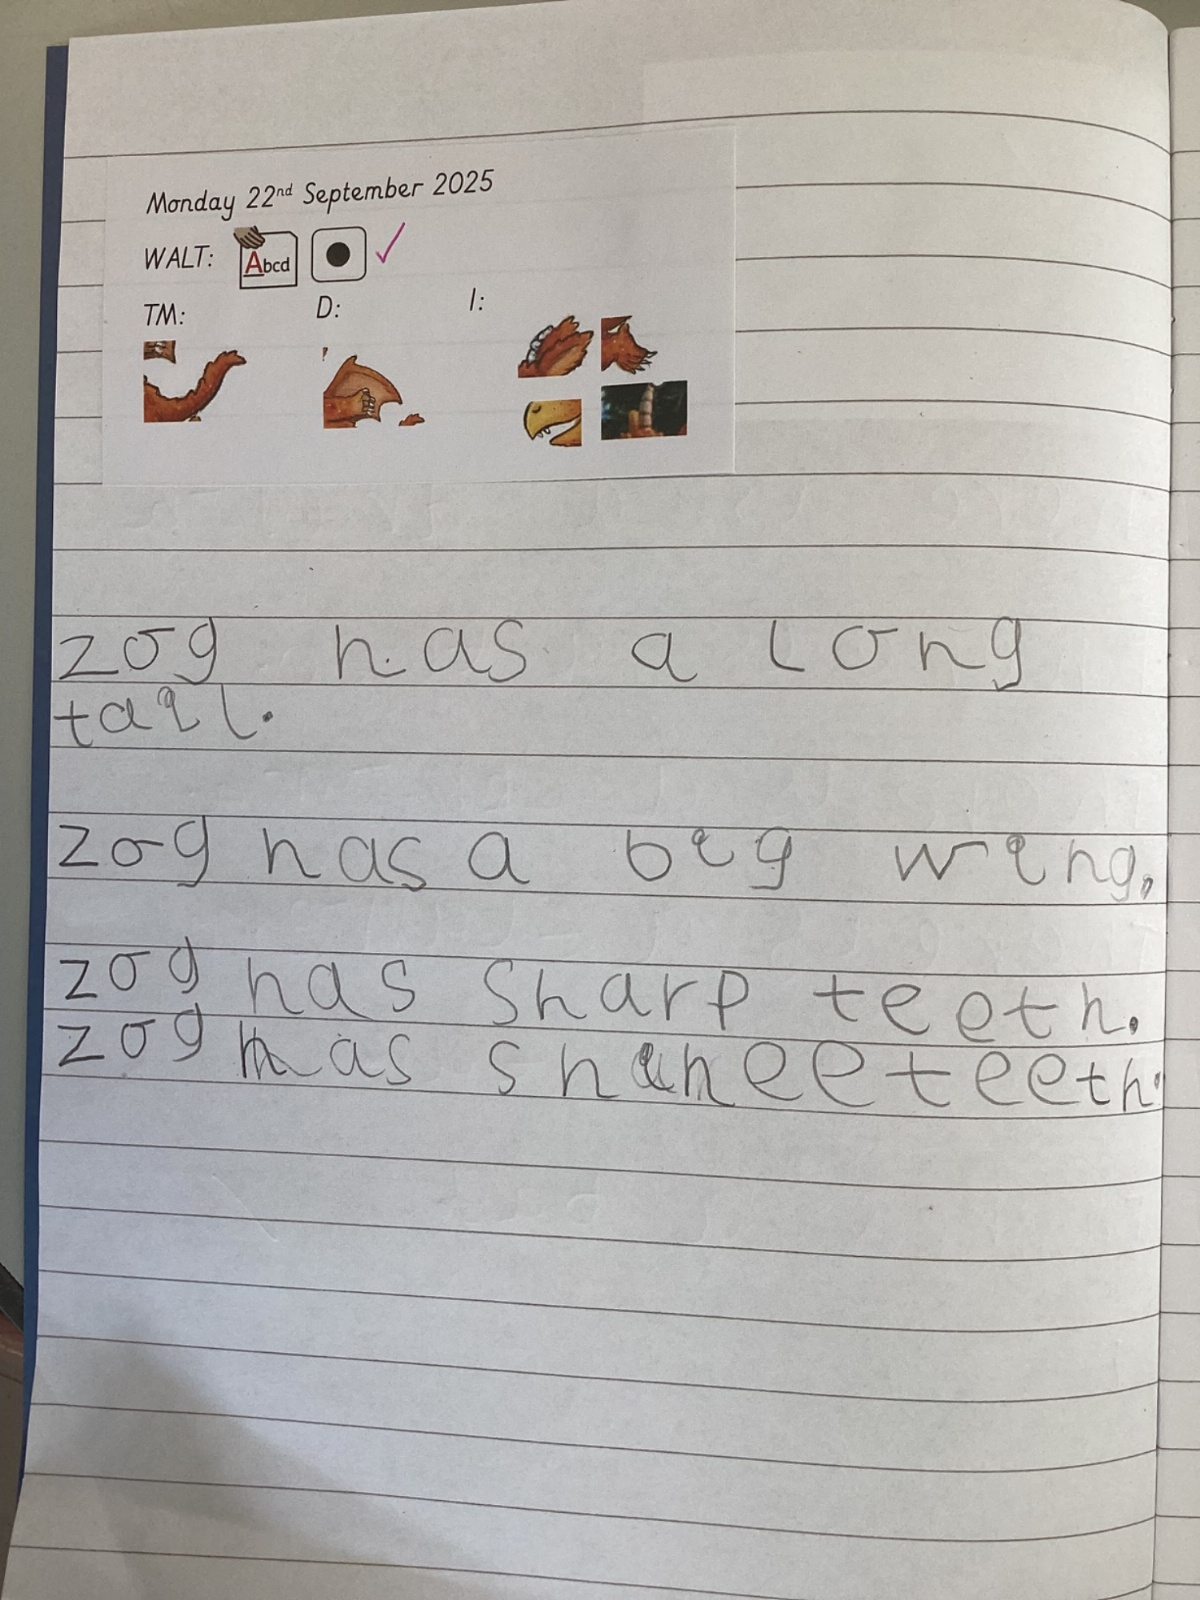 Monday 22nd September 2025
WALT: Abcd
TM: D: I:
zog has a long
tail.
zog has a big wing,
zog has sharp teeth.
zog has shanee teeth.